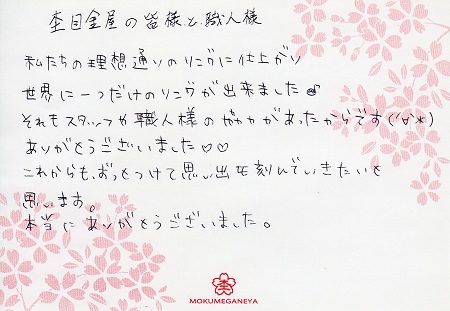 杢目金屋の皆様と、職人様
私たちの理想通りのリングに仕上がり
世界に一つだけのリングが出来ました♪
それもスタッフや職人様のおかげがあったからです(´∀`*)
ありがとうございました♡♡
これからも、ずっとつけて思い出を刻んでいきたいと
思います。
本当にありがとうございました。
MOKUMEGANEYA